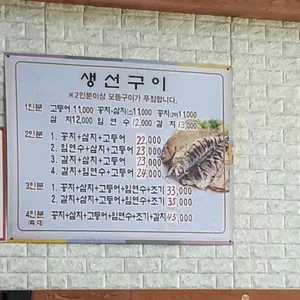 생선구이
※2인분이상 모듬구이가 푸짐합니다.
1인분 고등어 11,000 공치·삼치 11,000 공치 11,000
삼 치 12,000 임 연 수 12,000 갈 치 13,000
2인분 1. 꽁치+삼치+고등어 22,000
2. 임연수+삼치+고등어 23,000
3. 갈치+삼치+고등어 23,000
4. 갈치+임연수+고등어 24,000
3인분 1. 꽁치+삼치+고등어+임연수+조기 33,000
2. 갈치+삼치+고등어+임연수+조기 35,000
4인분 꽁치+삼치+고등어+임연수+조기+갈치 45,000